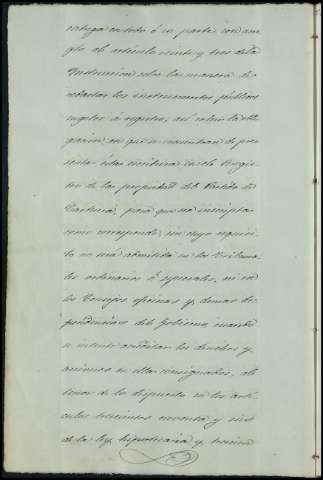 entrega en todo ó en parte, con arre-
glo al artículo veinte y tres de la
Instruccion sobre la manera de
redactar los instrumentos públicos
sugetos á registro; así como la obli-
gacion, en que de presen-
tar esta escritura en el Regis-
tro de la propiedad del Partido de
para que sea inscripta
como corresponde, sin cuyo requisi-
to no será admitida en los Tribuna-
les ordinarios ó especiales, ni en
los Consejos, oficinas y demas de-
pendencias del Gobierno, cuando
se intente los derechos y
acciones en ella consignados, al
tenor de lo dispuesto en los artí-
culos trescientos noventa y seis
de la ley hipotecaria y